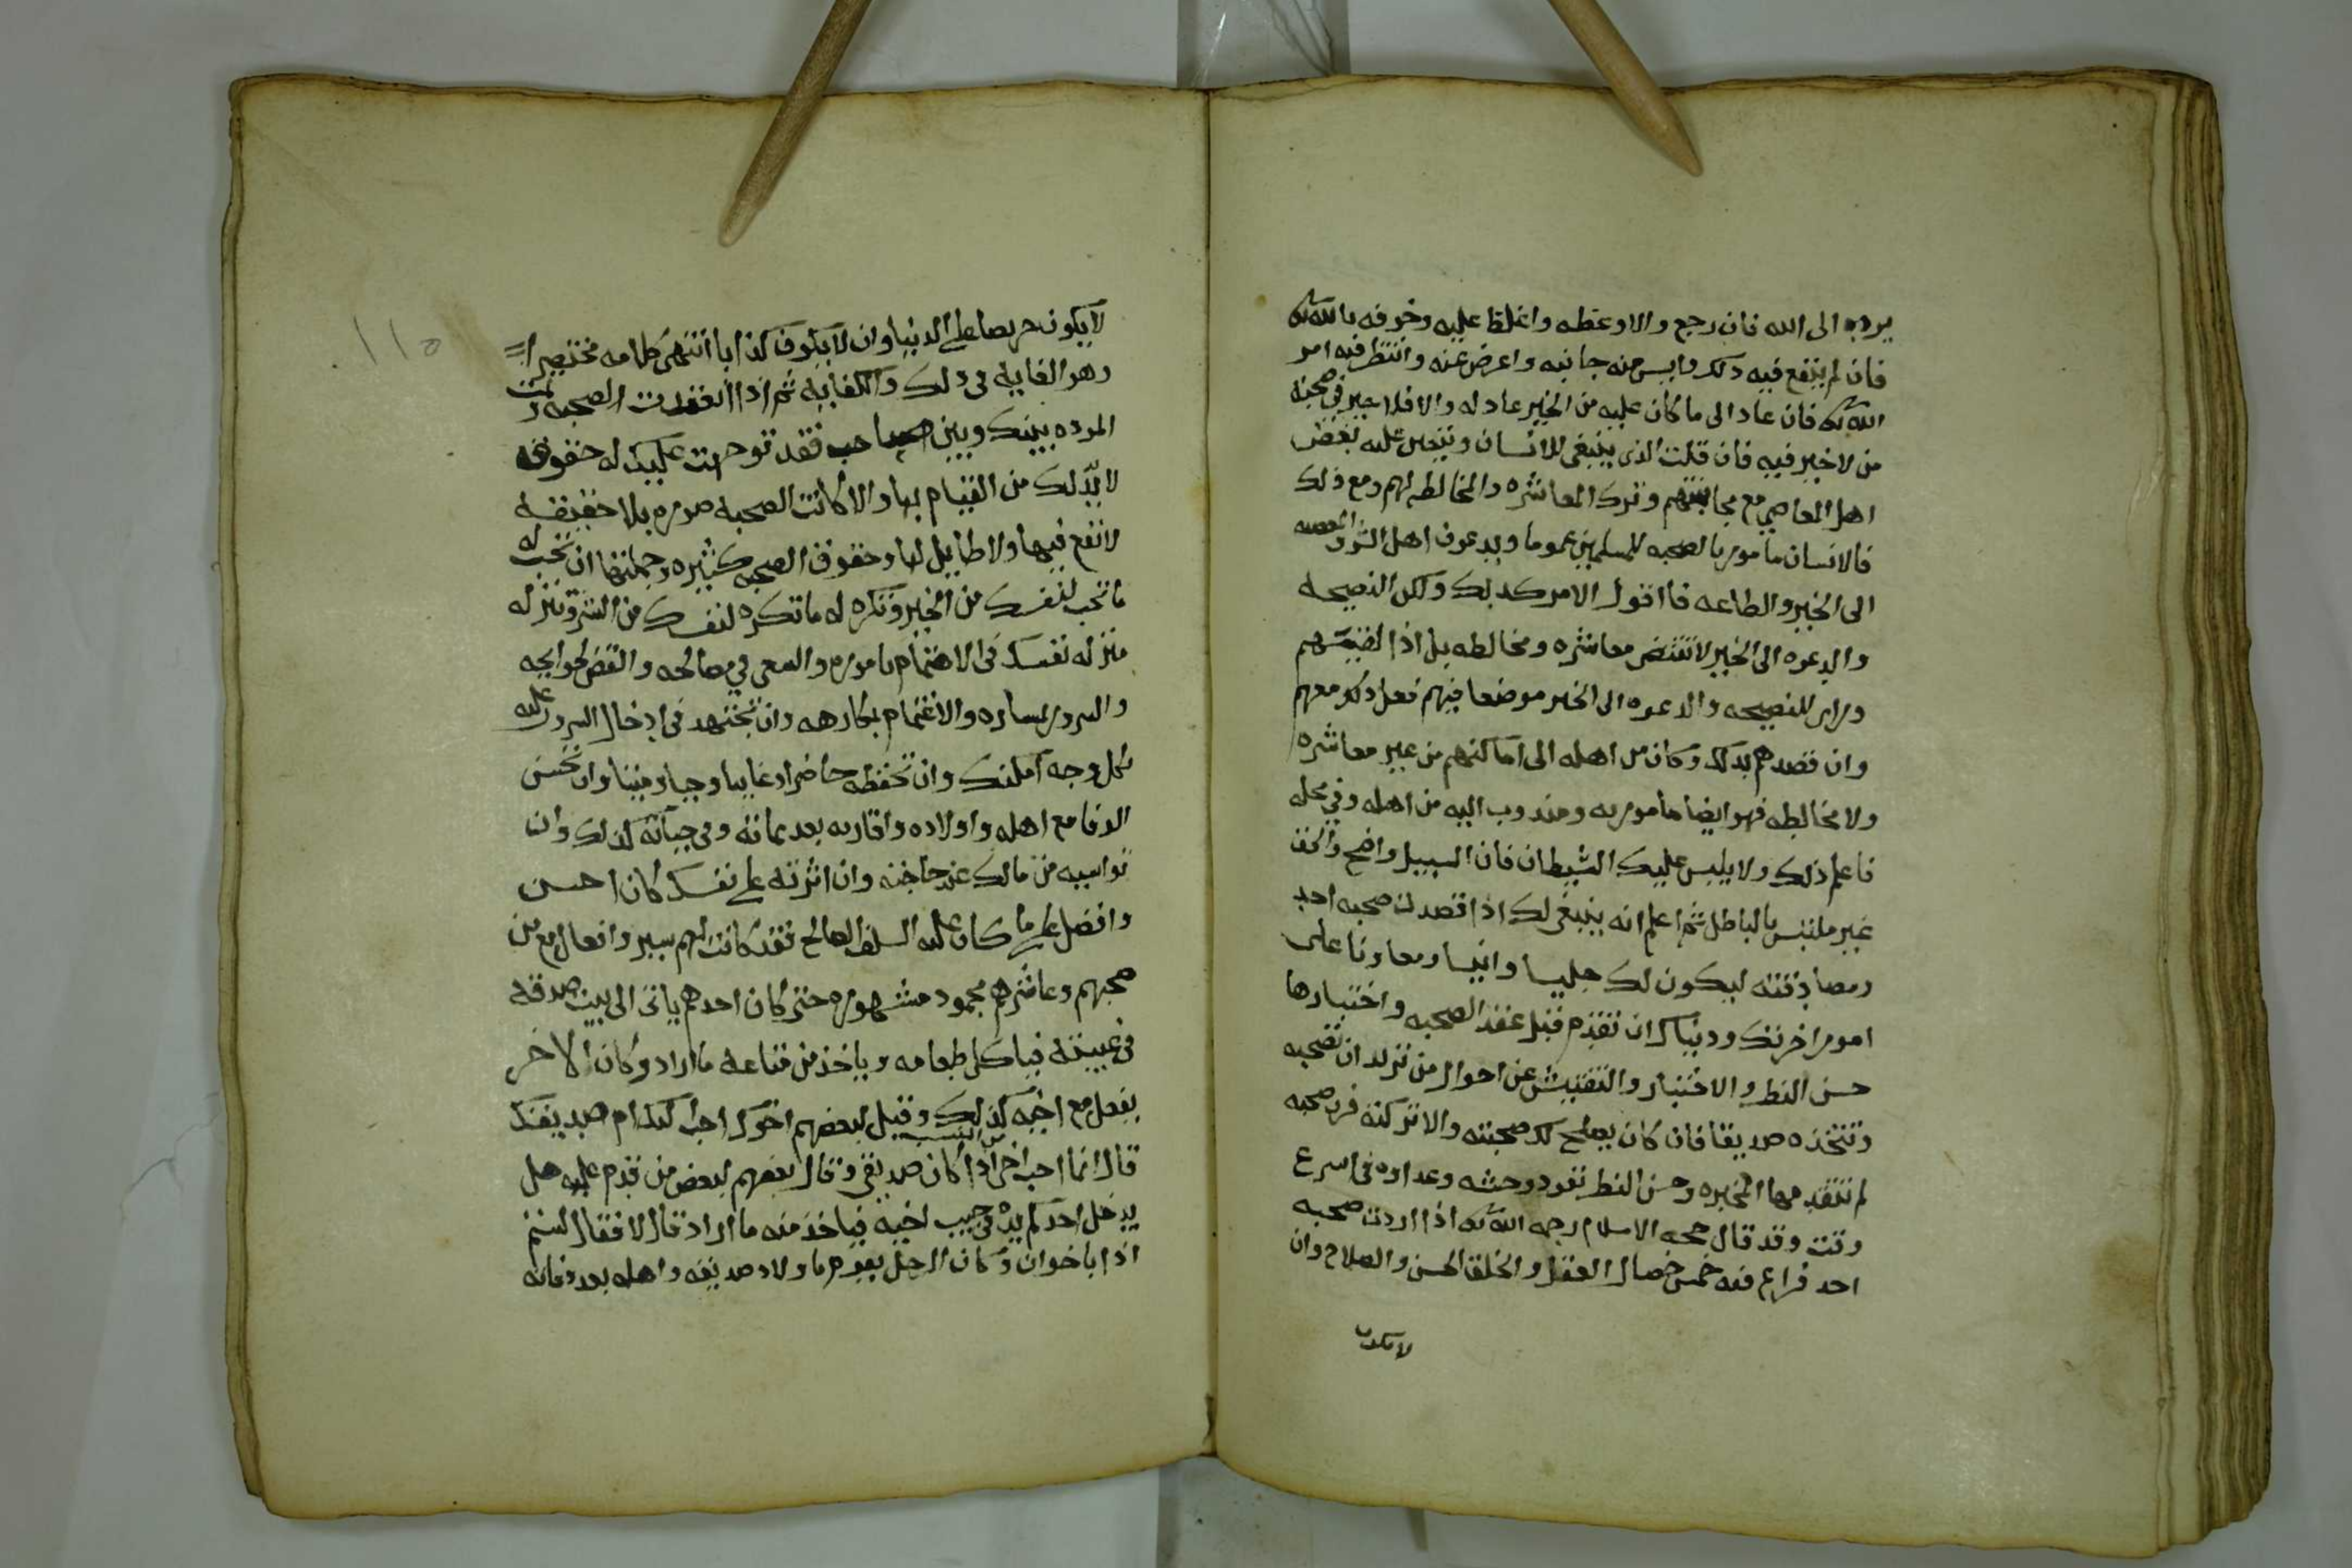 يرده الى الله فان رجع والا وعظه واغلظ عليه وخوفه بالله تع
فان لم ينفع فيه ذلك وايس منه جانبه واعرض عنه وانتظر فيه امر
الله تع فان عاد الى ما كان عليه من الخير عاد له والا فلا خير في صحبة
من لا خير فيه فان قلت الذي ينبغي للانسان ويتعين عليه بغض
اهل المعاصي مع مجانبتهم وترك المعاشره والمخالطه لهم ومع ذلك
فالانسان مامور بالنصيحه للمسلمين عموما ويدعون اهل الشر والمعصيه
الى الخير والطاعه فاقول الامر كذلك ولكن النصيحه
والدعوه الى الخير لا تقتضي معاشره ومخالطه بل اذا لقيهم
وراى للنصيحه والدعوه الى الخير موضعا فيهم فعل ذلك معهم
وان قصدهم بذلك وكان من اهله الى اماكنهم من غير معاشره
ولا مخالطه فهو ايضا مامور به ومندوب اليه من اهله وفي محله
فاعلم ذلك ولا يلبس عليك الشيطان فان السبيل واضح والحق
غير ملتبس بالباطل ثم اعلم انه ينبغي لك اذا قصدت صحبه احد
ومصادقته ليكون لك جليسا وانيسا ومعاونا على
امور اخرتك ودنياك ان تقدم قبل عقد الصحبه واختيارها
حسن النظر والاختبار والتفتيش عن احوال من تريد ان تصحبه
وتتخذه صديقا فان كان يصلح لك صحبته والا تركته فرب صحبه
لم تتقدمها الخبره وحسن النظر تعود وحشه وعداوه في اسرع
وقت وقد قال حجه الاسلام رحمه الله تع اذا اردت صحبه
احد فراع فيه خمس خصال العقل والخلق الحسن والصلاح وان
لا يكون
١١٥
لا يكون حريصا على الدنيا وان لا يكون كذابا انتهى كلامه مختصرا
وهو الغايه في ذلك والكفايه ثم اذا انعقدت الصحبه وتمت
الموده بينك وبين صاحب فقد توجهت عليك له حقوق
لا بد لك من القيام بها والا كانت الصحبه صوره بلا حقيقه
لا نفع فيها ولا طايل لها وحقوق الصحبه كثيره وجملتها ان تحب له
ما تحب لنفسك من الخير وتكره له ما تكره لنفسك من الشر وتنزله
منزله نفسك في الاهتمام باموره والسعي في مصالحه والقضا لحوايجه
والسرور بمساره والاغتمام بمكارهه وان تجتهد في ادخال السرور عليه
بكل وجه امكنك وان تحفظه حاضرا وغايبا وحيا وميتا وان تحسن
الوفا مع اهله واولاده واقاربه بعد مماته وفي حياته كذلك وان
تواسيه من مالك عند حاجته وان اثرته على نفسك كان احسن
وافضل على ما كان عليه السلف الصالح فقد كانت لهم سير وافعال مع من
صحبهم وعاشرهم محموده مشهوره حتى كان احدهم ياتي الى بيت صديقه
في غيبته فياكل طعامه وياخذ من متاعه ما اراد وكان الاخر
يفعل مع اخيه كذلك وقيل لبعضهم اخوك احب اليك ام صديقك
قال انما احب اخي من النسب اذا كان صديقي وقال بعضهم لبعض من قدم عليه هل
يدخل احدكم يده في جيب اخيه فياخذ منه ما اراد قال لا فقال لستم
اذا باخوان وكان الرجل يقوم باولاد صديقه واهله بعد وفاته